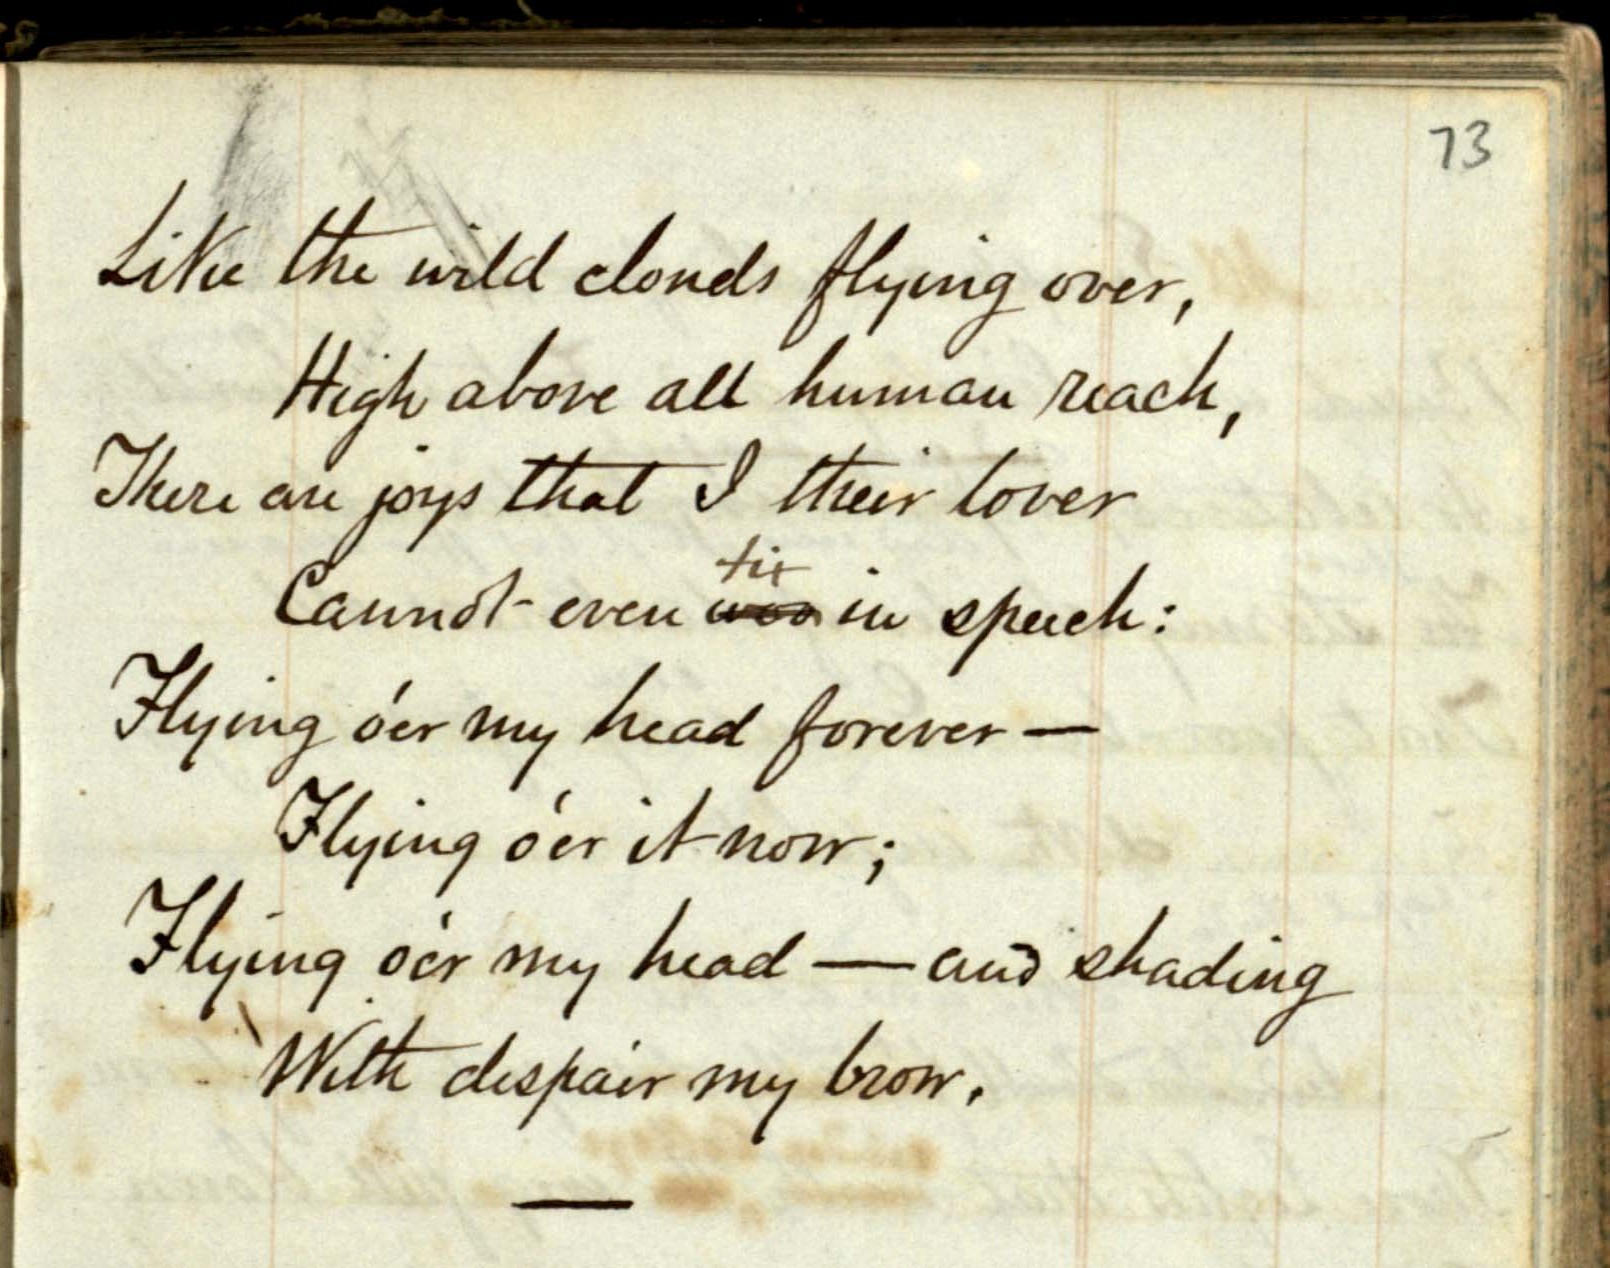 73
Like the wild clouds flying over,
High above all human reach,
There are joys that I their lover
fix
Cannot even woo in speech:
Flying o'er my head forever —
Flying o'er it now;
Flying o'er my head — and shading
With despair my brow.